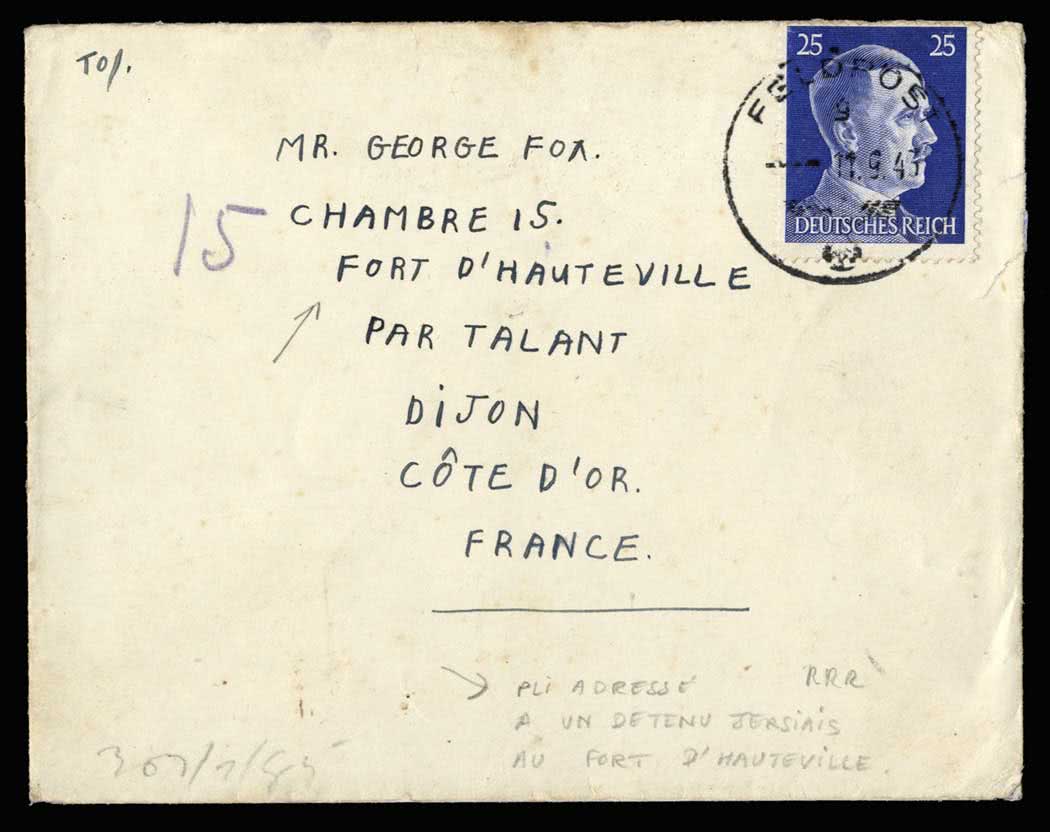 TO/.
25 25
FELDPOST
9
11.9.43
DEUTSCHES REICH
MR. GEORGE FOX.
15
CHAMBRE 15.
FORT D'HAUTEVILLE
PAR TALANT
DIJON
CÔTE D'OR.
FRANCE.
PLI ADRESSÉ RRR
A UN DETENU JERSIAIS
AU FORT D'HAUTEVILLE.